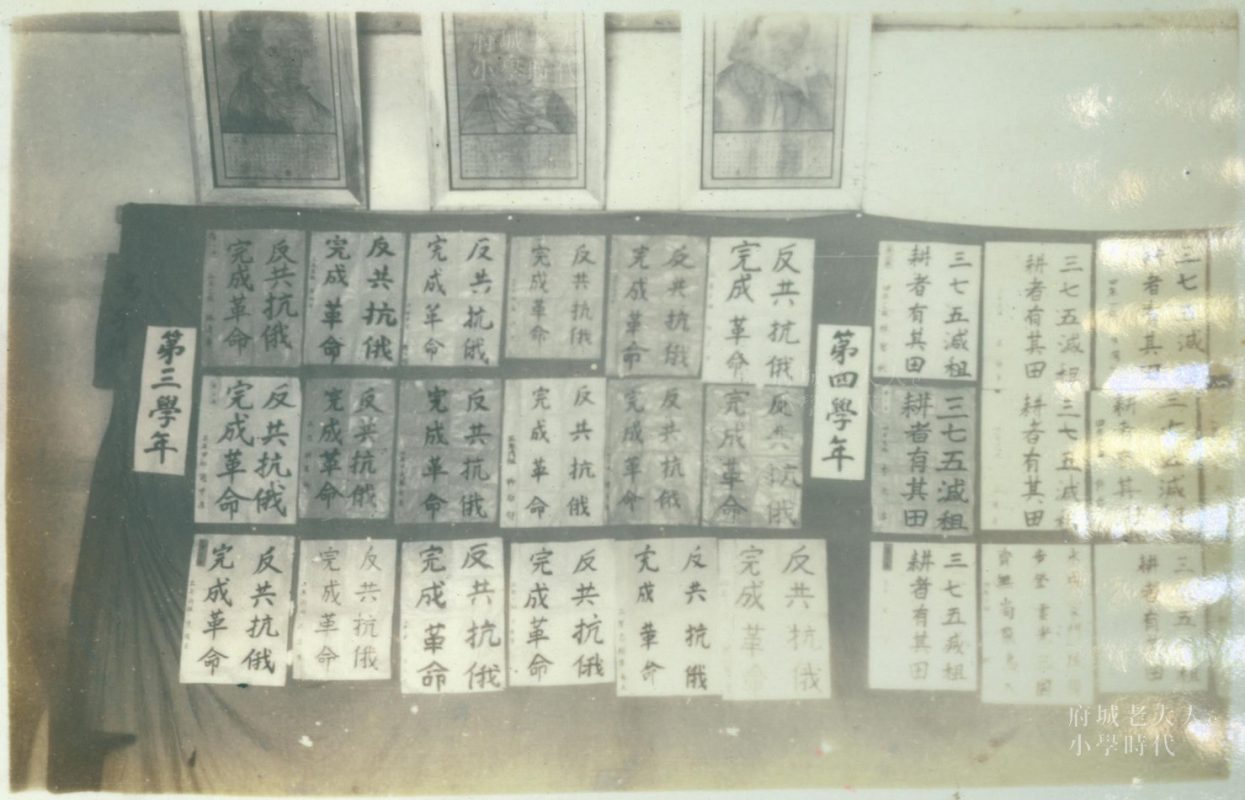 府城老夫人
小學時代
第三學年
反共抗俄
完成革命
反共抗俄
完成革命
反共抗俄
完成革命
反共抗俄
完成革命
反共抗俄
完成革命
反共抗俄
完成革命
反共抗俄
完成革命
反共抗俄
完成革命
反共抗俄
完成革命
反共抗俄
完成革命
反共抗俄
完成革命
反共抗俄
完成革命
反共抗俄
完成革命
反共抗俄
完成革命
反共抗俄
完成革命
反共抗俄
完成革命
反共抗俄
完成革命
反共抗俄
完成革命
第四學年
三七五減租
耕者有其田
三七五減租
耕者有其田
三七五減
耕者有其田
三七五減租
耕者有其田
三七五減租
耕者有其田
三七五減租
耕者有其田
三七五減租
耕者有其田
三七五減租
耕者有其田
府城老夫人
小學時代